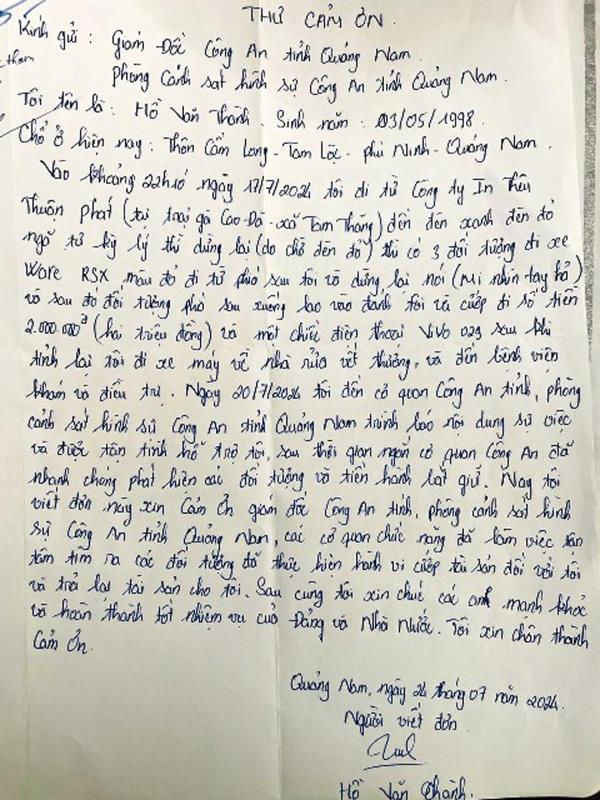 THƯ CẢM ƠN.
Kính gửi : Giám Đốc Công An tỉnh Quảng Nam.
Phòng Cảnh sát hình sự Công An tỉnh Quảng Nam.
Tôi tên là : Hồ Văn Thành. Sinh năm : 03/05/1998.
Chổ ở hiện nay : Thôn Cẩm Long - Tam Lộc - phú Ninh - Quảng Nam.
Vào khoảng 22h10 ngày 17/7/2024 tôi đi từ Công ty In Thêu
Thuận Phát (tại trại gà Cao-Đà - xã Tam Thăng) đến đèn xanh đèn đỏ
ngã tư kỳ lý thì dừng lại (do chờ đèn đỏ) thì có 3 đối tượng đi xe
Ware RSX màu đỏ đi từ phía sau tới và dừng lại nói (Mi nhìn tay hả)
và sau đó đối tượng phía sau xuống lao vào đánh tôi và cướp đi số tiền
2.000.000đ (hai triệu đồng) và một chiếc điện thoại ViVo 023 sau khi
tỉnh lại tôi đi xe máy về nhà rửa vết thương, và đến bệnh viện
khám và điều trị. Ngày 20/7/2024 tôi đến cơ quan Công An tỉnh, phòng
cảnh sát hình sự Công An tỉnh Quảng Nam trình báo nội dung sự việc
và được tận tình hỗ trợ tôi, sau thời gian ngắn cơ quan Công An đã
nhanh chóng phát hiện các đối tượng và tiến hành bắt giữ. Nay tôi
viết đơn này xin Cảm Ơn giám đốc Công An tỉnh, phòng cảnh sát hình
sự Công An tỉnh Quảng Nam, các cơ quan chức năng đã làm việc tận
tâm tìm ra các đối tượng đã thực hiện hành vi cướp tài sản đối với tôi
và trả lại tài sản cho tôi. Sau cùng tôi xin chúc các anh mạnh khỏe
và hoàn thành tốt nhiệm vụ của Đảng và Nhà Nước. Tôi xin chân thành
Cảm Ơn.
Quảng Nam, ngày 24 tháng 07 năm 2024.
Người viết đơn.
Hồ Văn Thành.